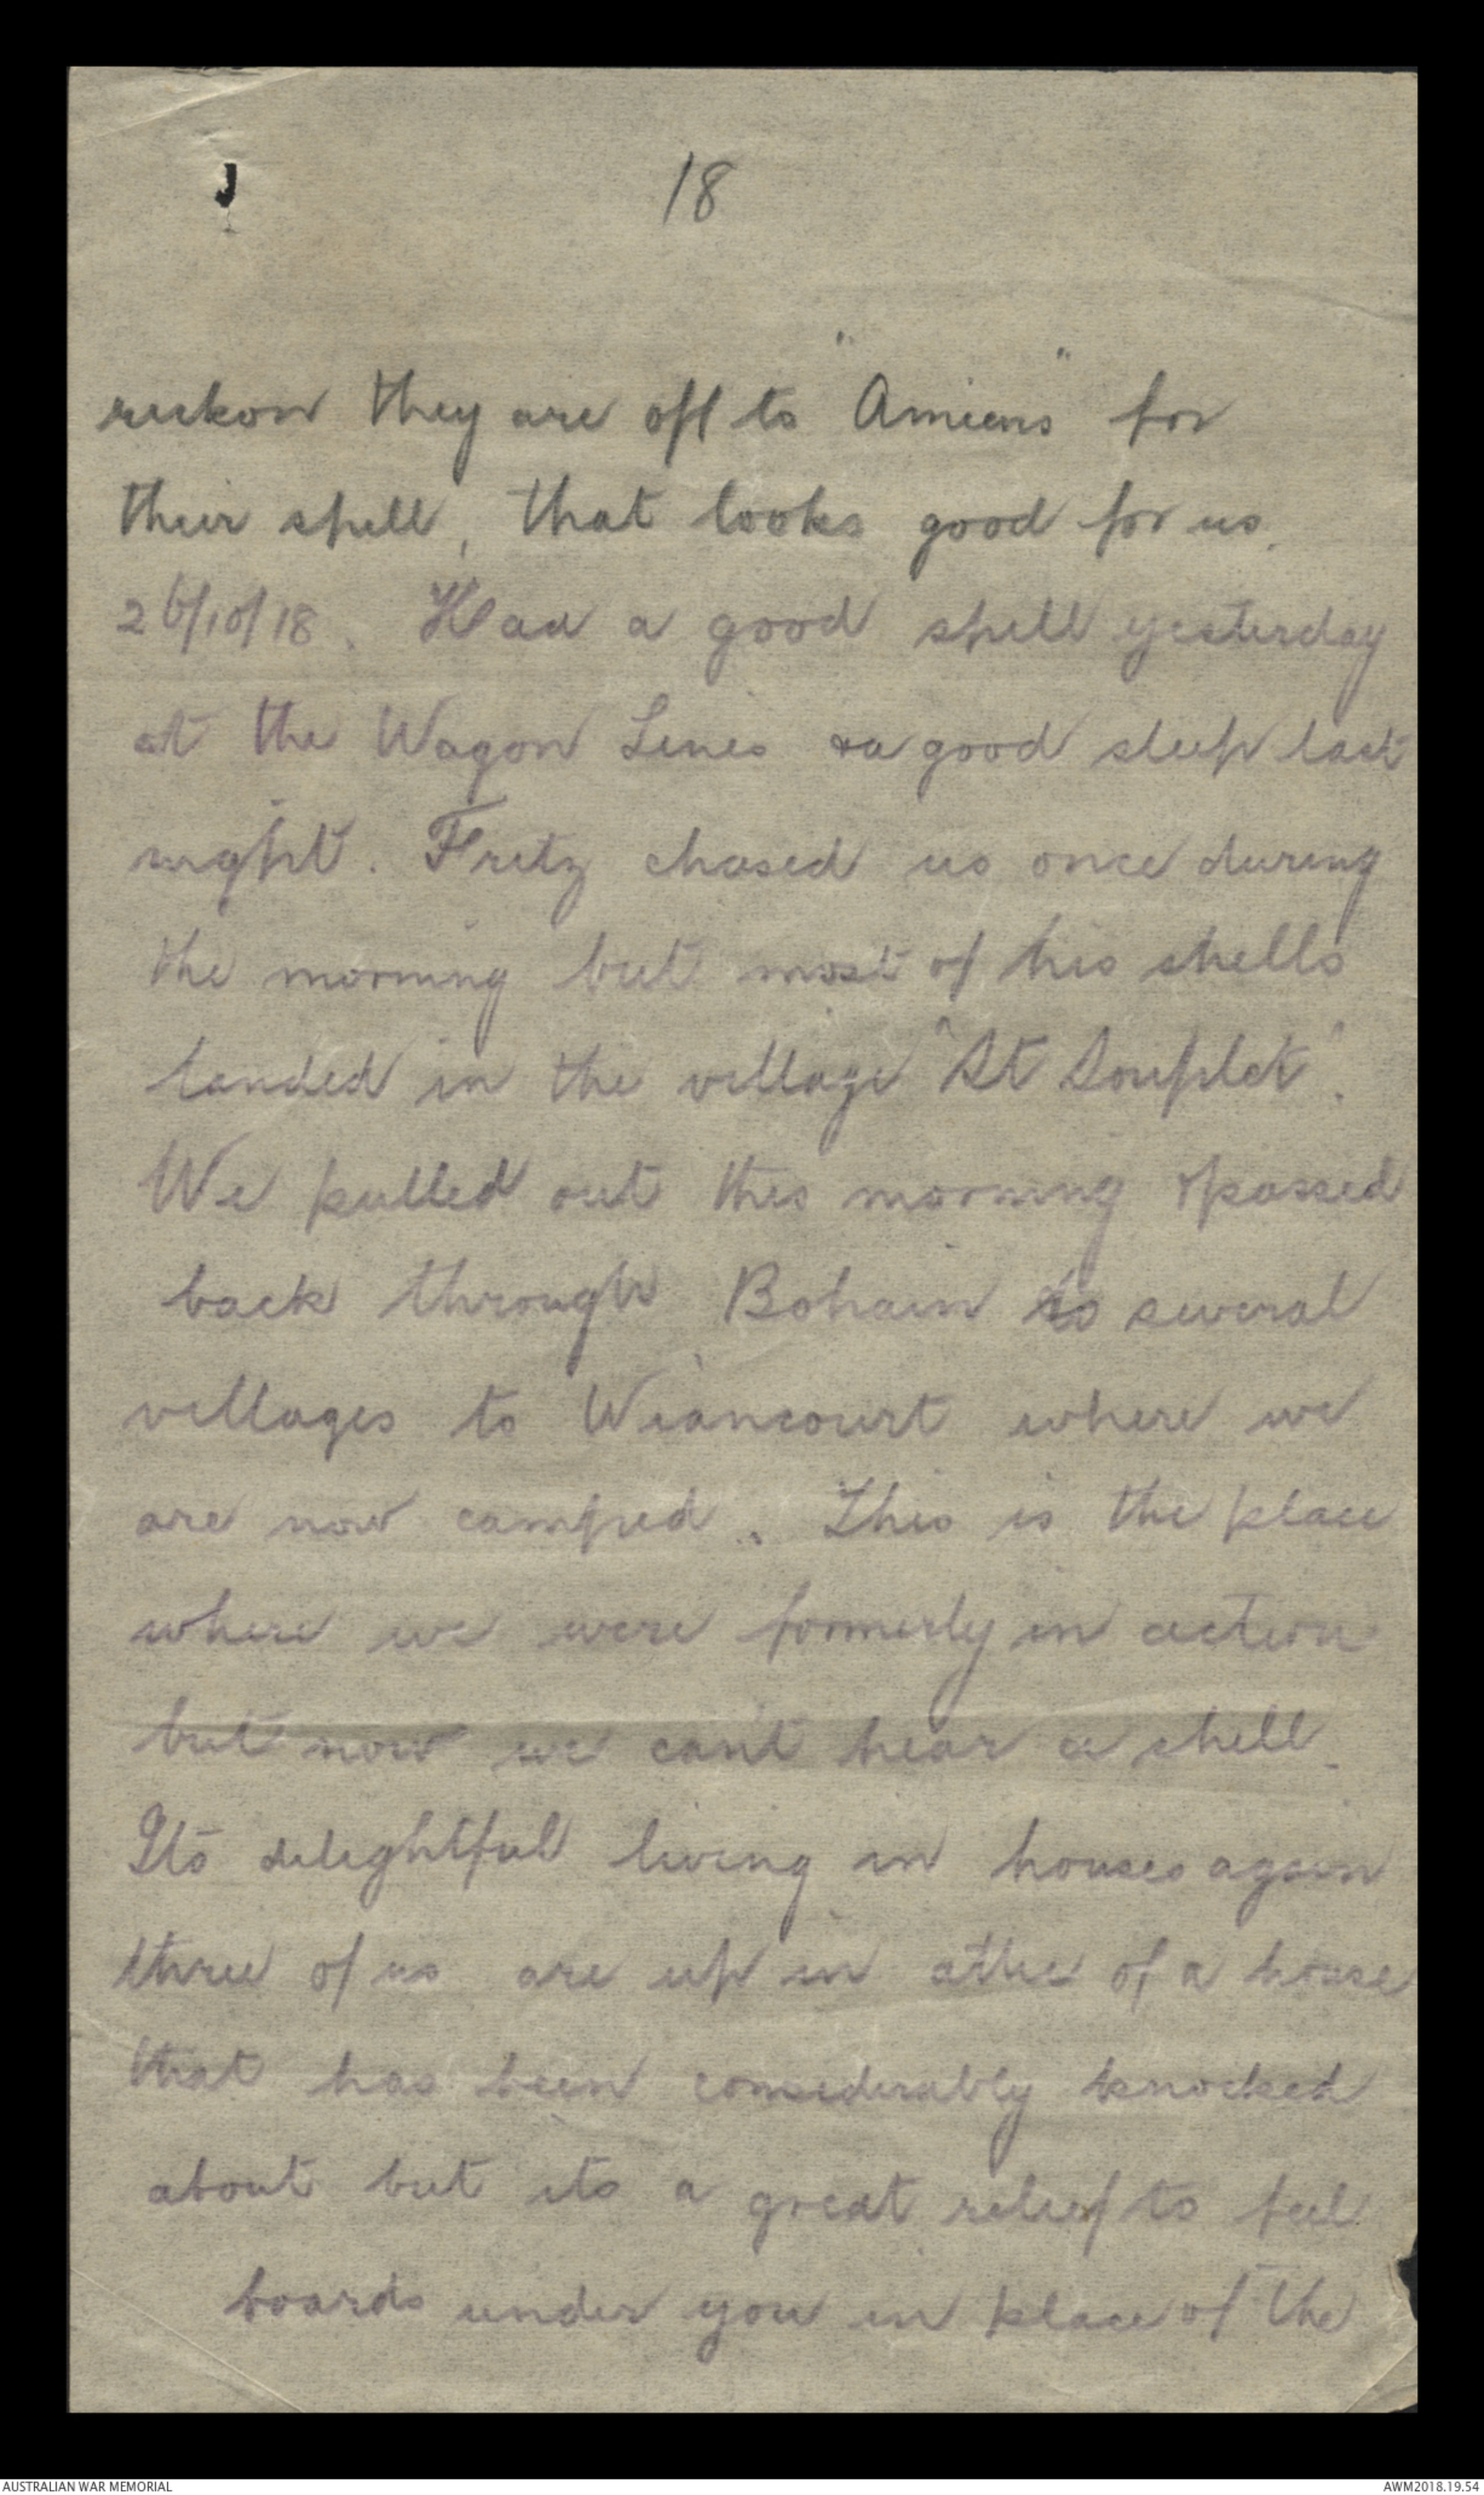 18
reckon they are off to "Amiens" for
their spell, that looks good for us.
26/10/18. Had a good spell yesterday
at the Wagon Lines & a good sleep last
night. Fritz chased us once during
the morning but most of his shells
landed in the village "St Souplet".
We pulled out this morning & passed
back through Bohain & several
villages to Wiancourt where we
are now camped. This is the place
where we were formerly in action
but now we can't hear a shell.
Its delightful living in houses again
three of us are up in attic of a house
that has been considerably knocked
about but its a great relief to feel
boards under you in place of the
AUSTRALIAN WAR MEMORIAL
AWM2018.19.54